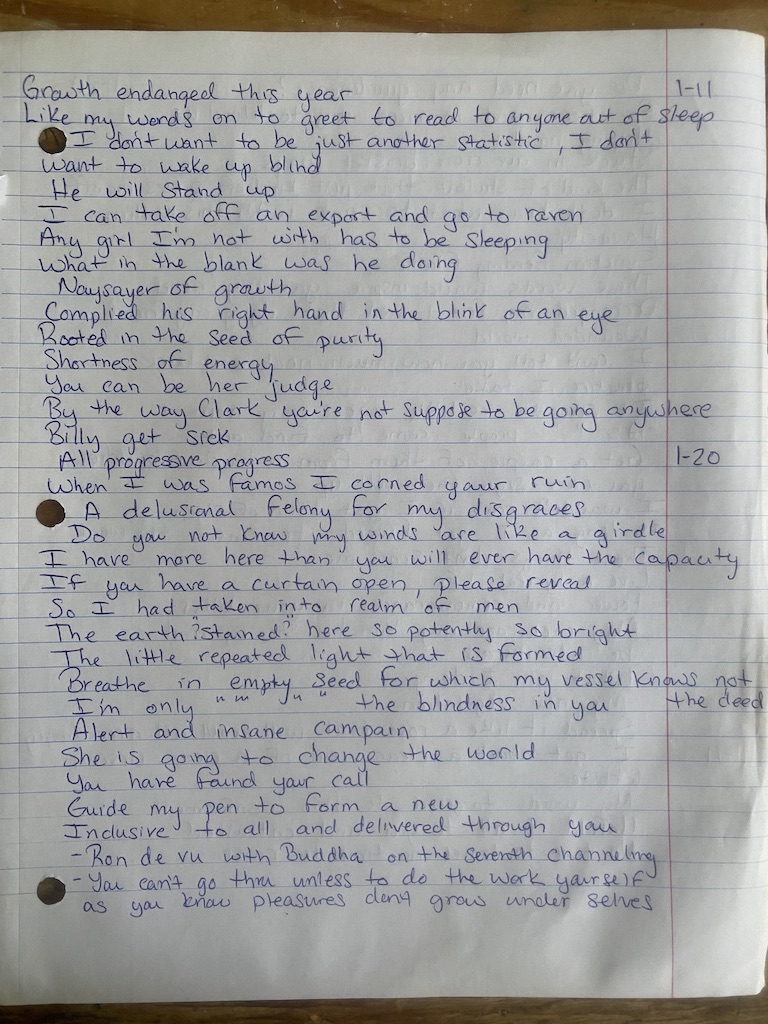 Growth endanged this year 1-11
Like my words on to greet to read to anyone out of sleep
I don't want to be just another statistic, I don't
want to wake up blind
He will Stand up
I can take off an export and go to raven
Any girl I'm not with has to be Sleeping
What in the blank was he doing
Naysayer of growth
Complied his right hand in the blink of an eye
Rooted in the Seed of purity
Shortness of energy
You can be her judge
By the way Clark you're not suppose to be going anywhere
Billy get sick
All progressive progress 1-20
When I was famos I corned your ruin
A delusional Felony for my disgraces
Do you not know my winds are like a girdle
I have more here than you will ever have the capacity
If you have a curtain open, please reveal
So I had "taken into" realm of men
The earth ?Stained? here so potently so bright
The little repeated light that is formed
Breathe in empty Seed for which my vessel knows not
the deed
I'm only " " " " the blindness in you
Alert and insane campain
She is going to change the world
You have found your call
Guide my pen to form a new
Inclusive to all and delivered through you
- Ron de vu with Buddha on the seventh channeling
- You can't go thru unless to do the work yourself
as you know pleasures don't grow under selves